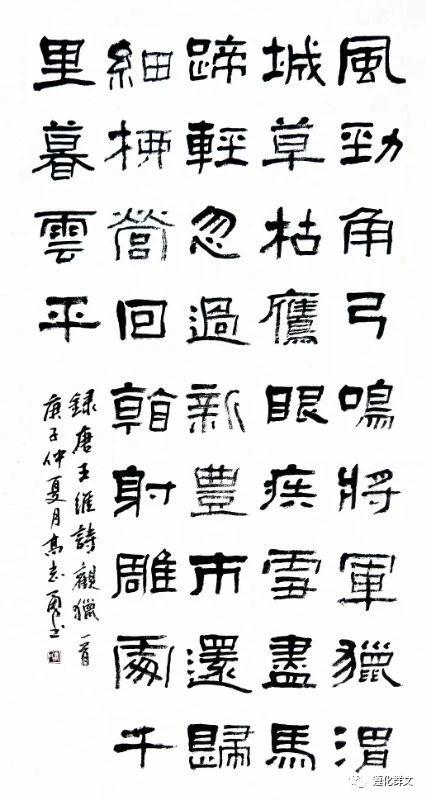 風勁角弓鳴將軍獵渭
城草枯鷹眼疾雪盡馬
蹄輕忽過新豊市還歸
細柳營回看射雕處千
里暮雲平
録唐王維詩觀獵一首
庚子仲夏月高志勇书
遵化群文